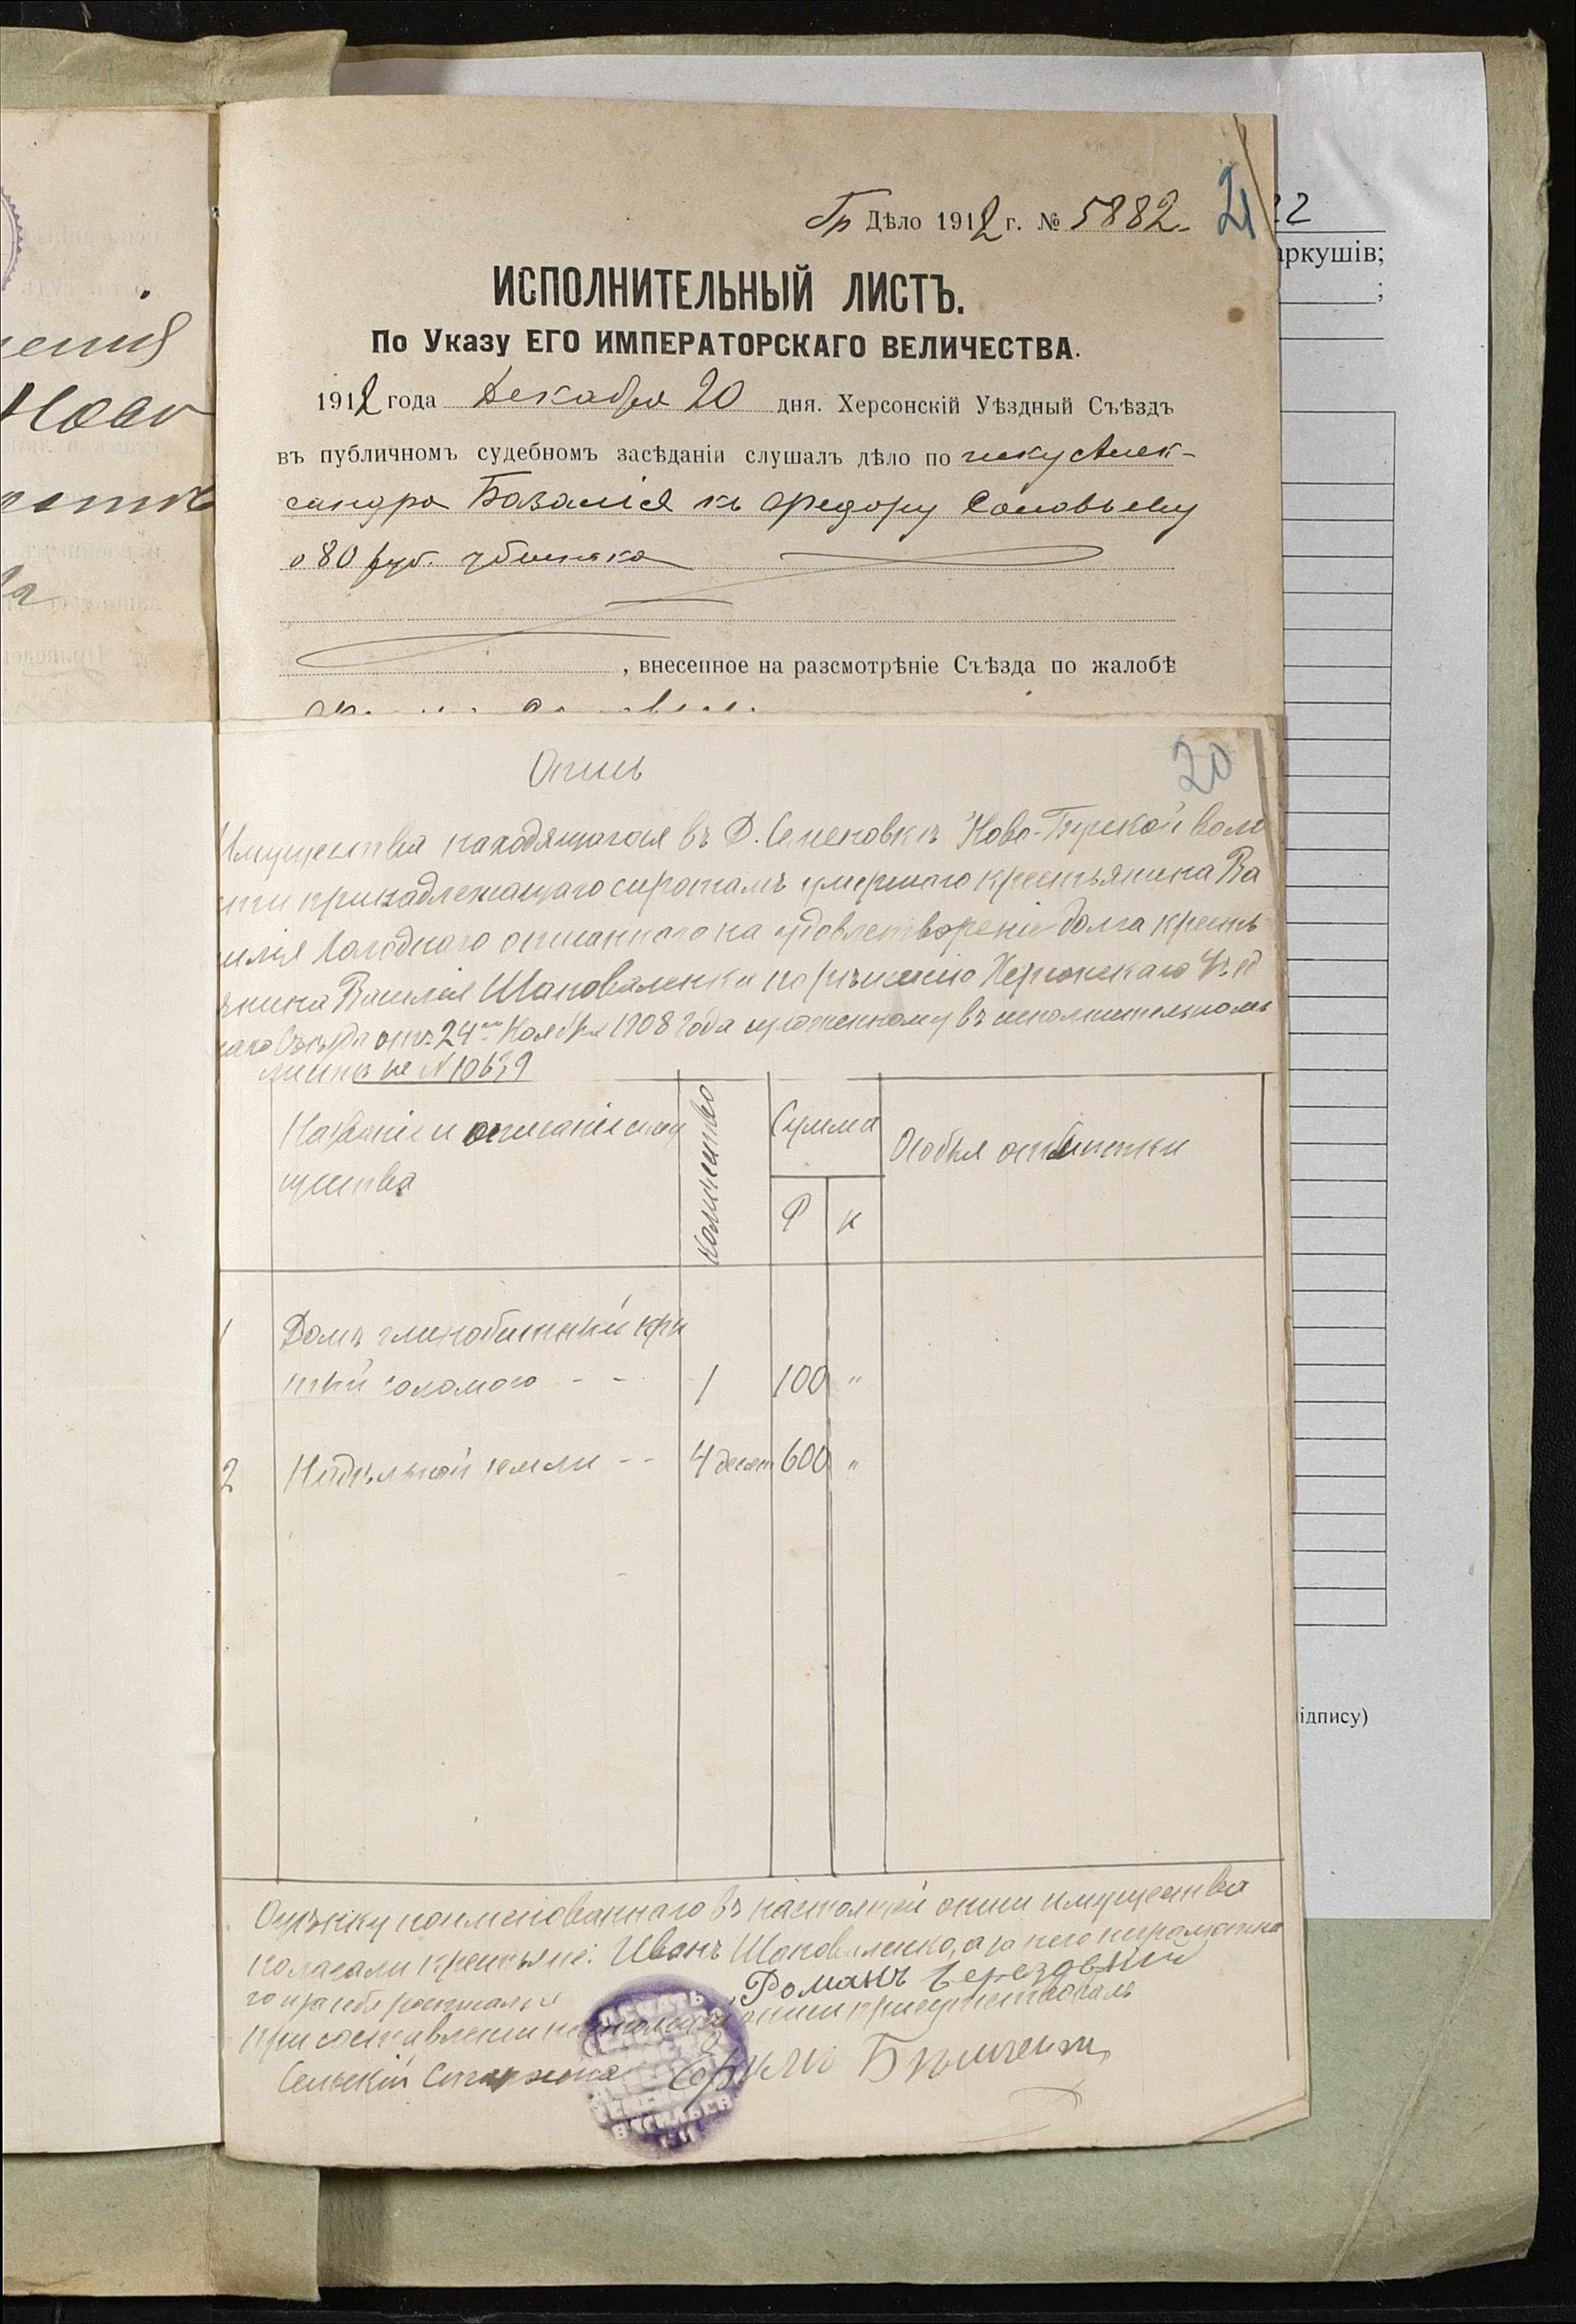 Гр Дѣло 1912 г. № 5882.
21
22
аркушів;
;
ИСПОЛНИТЕЛЬНЫЙ ЛИСТЪ.
По Указу ЕГО ИМПЕРАТОРСКАГО ВЕЛИЧЕСТВА.
1912 года Декабря 20 дня. Херсонскій Уѣздный Съѣздъ
въ публичномъ судебномъ засѣданіи слушалъ дѣло по иску Алек-
сандра Базалія къ Федору Соловьеву
о 80 руб. убытка
, внесенное на разсмотрѣніе Съѣзда по жалобѣ
20
Опись
Имущества находящагося въ Д. Семеновкѣ Ново-Бугской воло
сти принадлежащаго сиротамъ умершаго крестьянина Ва
силія описаннаго на удовлетвореніе долга кресть
янина Василія Шаповаленки по рѣшенію Херсонскаго Уѣзд
наго Съѣзда отъ 24го Ноября 1908 года изложенному въ исполнительномъ
листѣ за № 10639
Названіе и описаніе иму
щества
Количество
Сумма
Р
к
Особыя отмѣтки
1 Домъ глинобитный кры
тый соломою - - 1 100 "
2 Надѣльной земли - - 4 десят 600 "
Оцѣнку поименованнаго въ настоящей описи имущества
полагали крестьяне: Иванъ Шаповаленко, а за него неграмотна
го и за себя росписался Романъ Березовский
При составлении настоящей описи присутствовалъ
Сельскій Староста
ПЕЧАТЬ
ідпису)